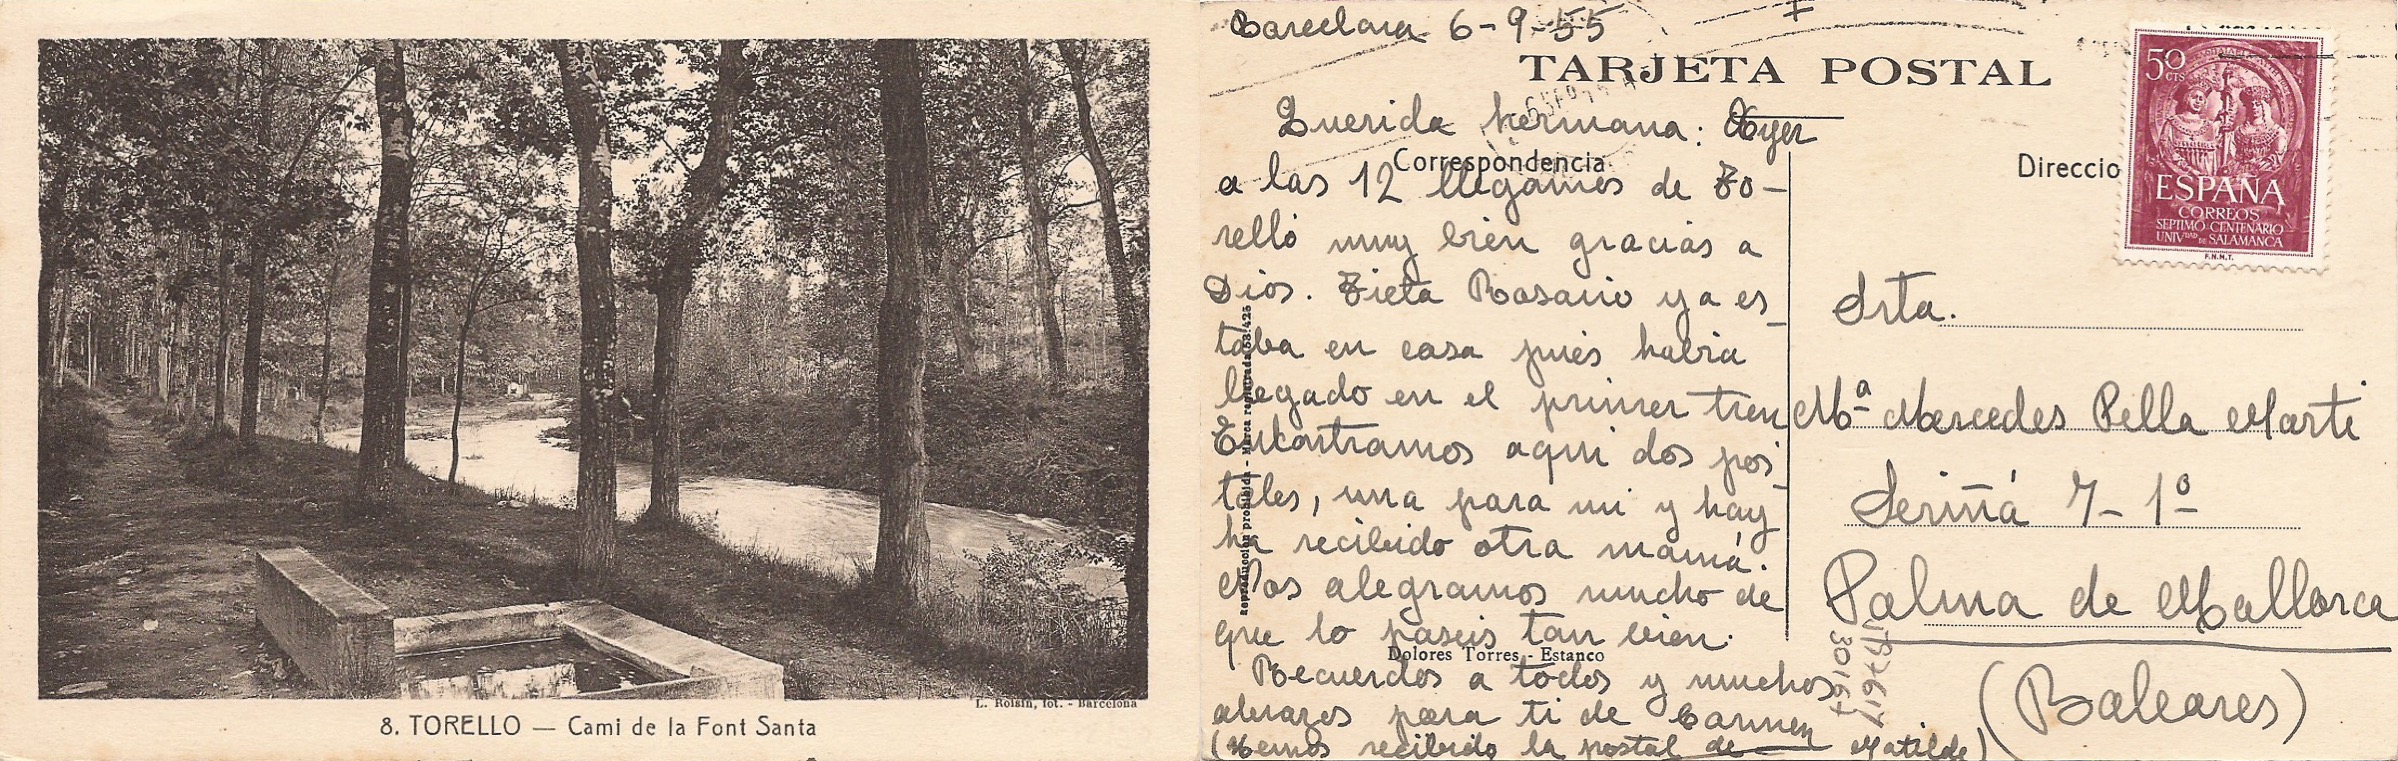 L. Roisin, fot. - Barcelona
8. TORELLO — Cami de la Font Santa
Barcelona 6-9-55
TARJETA POSTAL
Querida hermana: Ayer
Correspondencia
a las 12 llegamos de To-
relló muy bien gracias a
Dios. Tieta Rosario ya es-
taba en casa pues habia
llegado en el primer tren
Encontramos aqui dos pos-
tales, una para mi y hay
ha recibido otra mamá.
Nos alegramos mucho de
que lo paseis tan bien.
Dolores Torres - Estanco
Recuerdos a todos y muchos
abrazos para ti de Carmen
(Hemos recibido la postal de Matilde)
Reproducción prohibida - Marca registrada 53.425
Direccio
50 CTS
ESPAÑA
CORREOS
SEPTIMO CENTENARIO
UNIVDAD DE SALAMANCA
F.N.M.T.
Srta.
Mª Mercedes Pella Marti
Seriñá 7-1º
Palma de Mallorca
(Baleares)